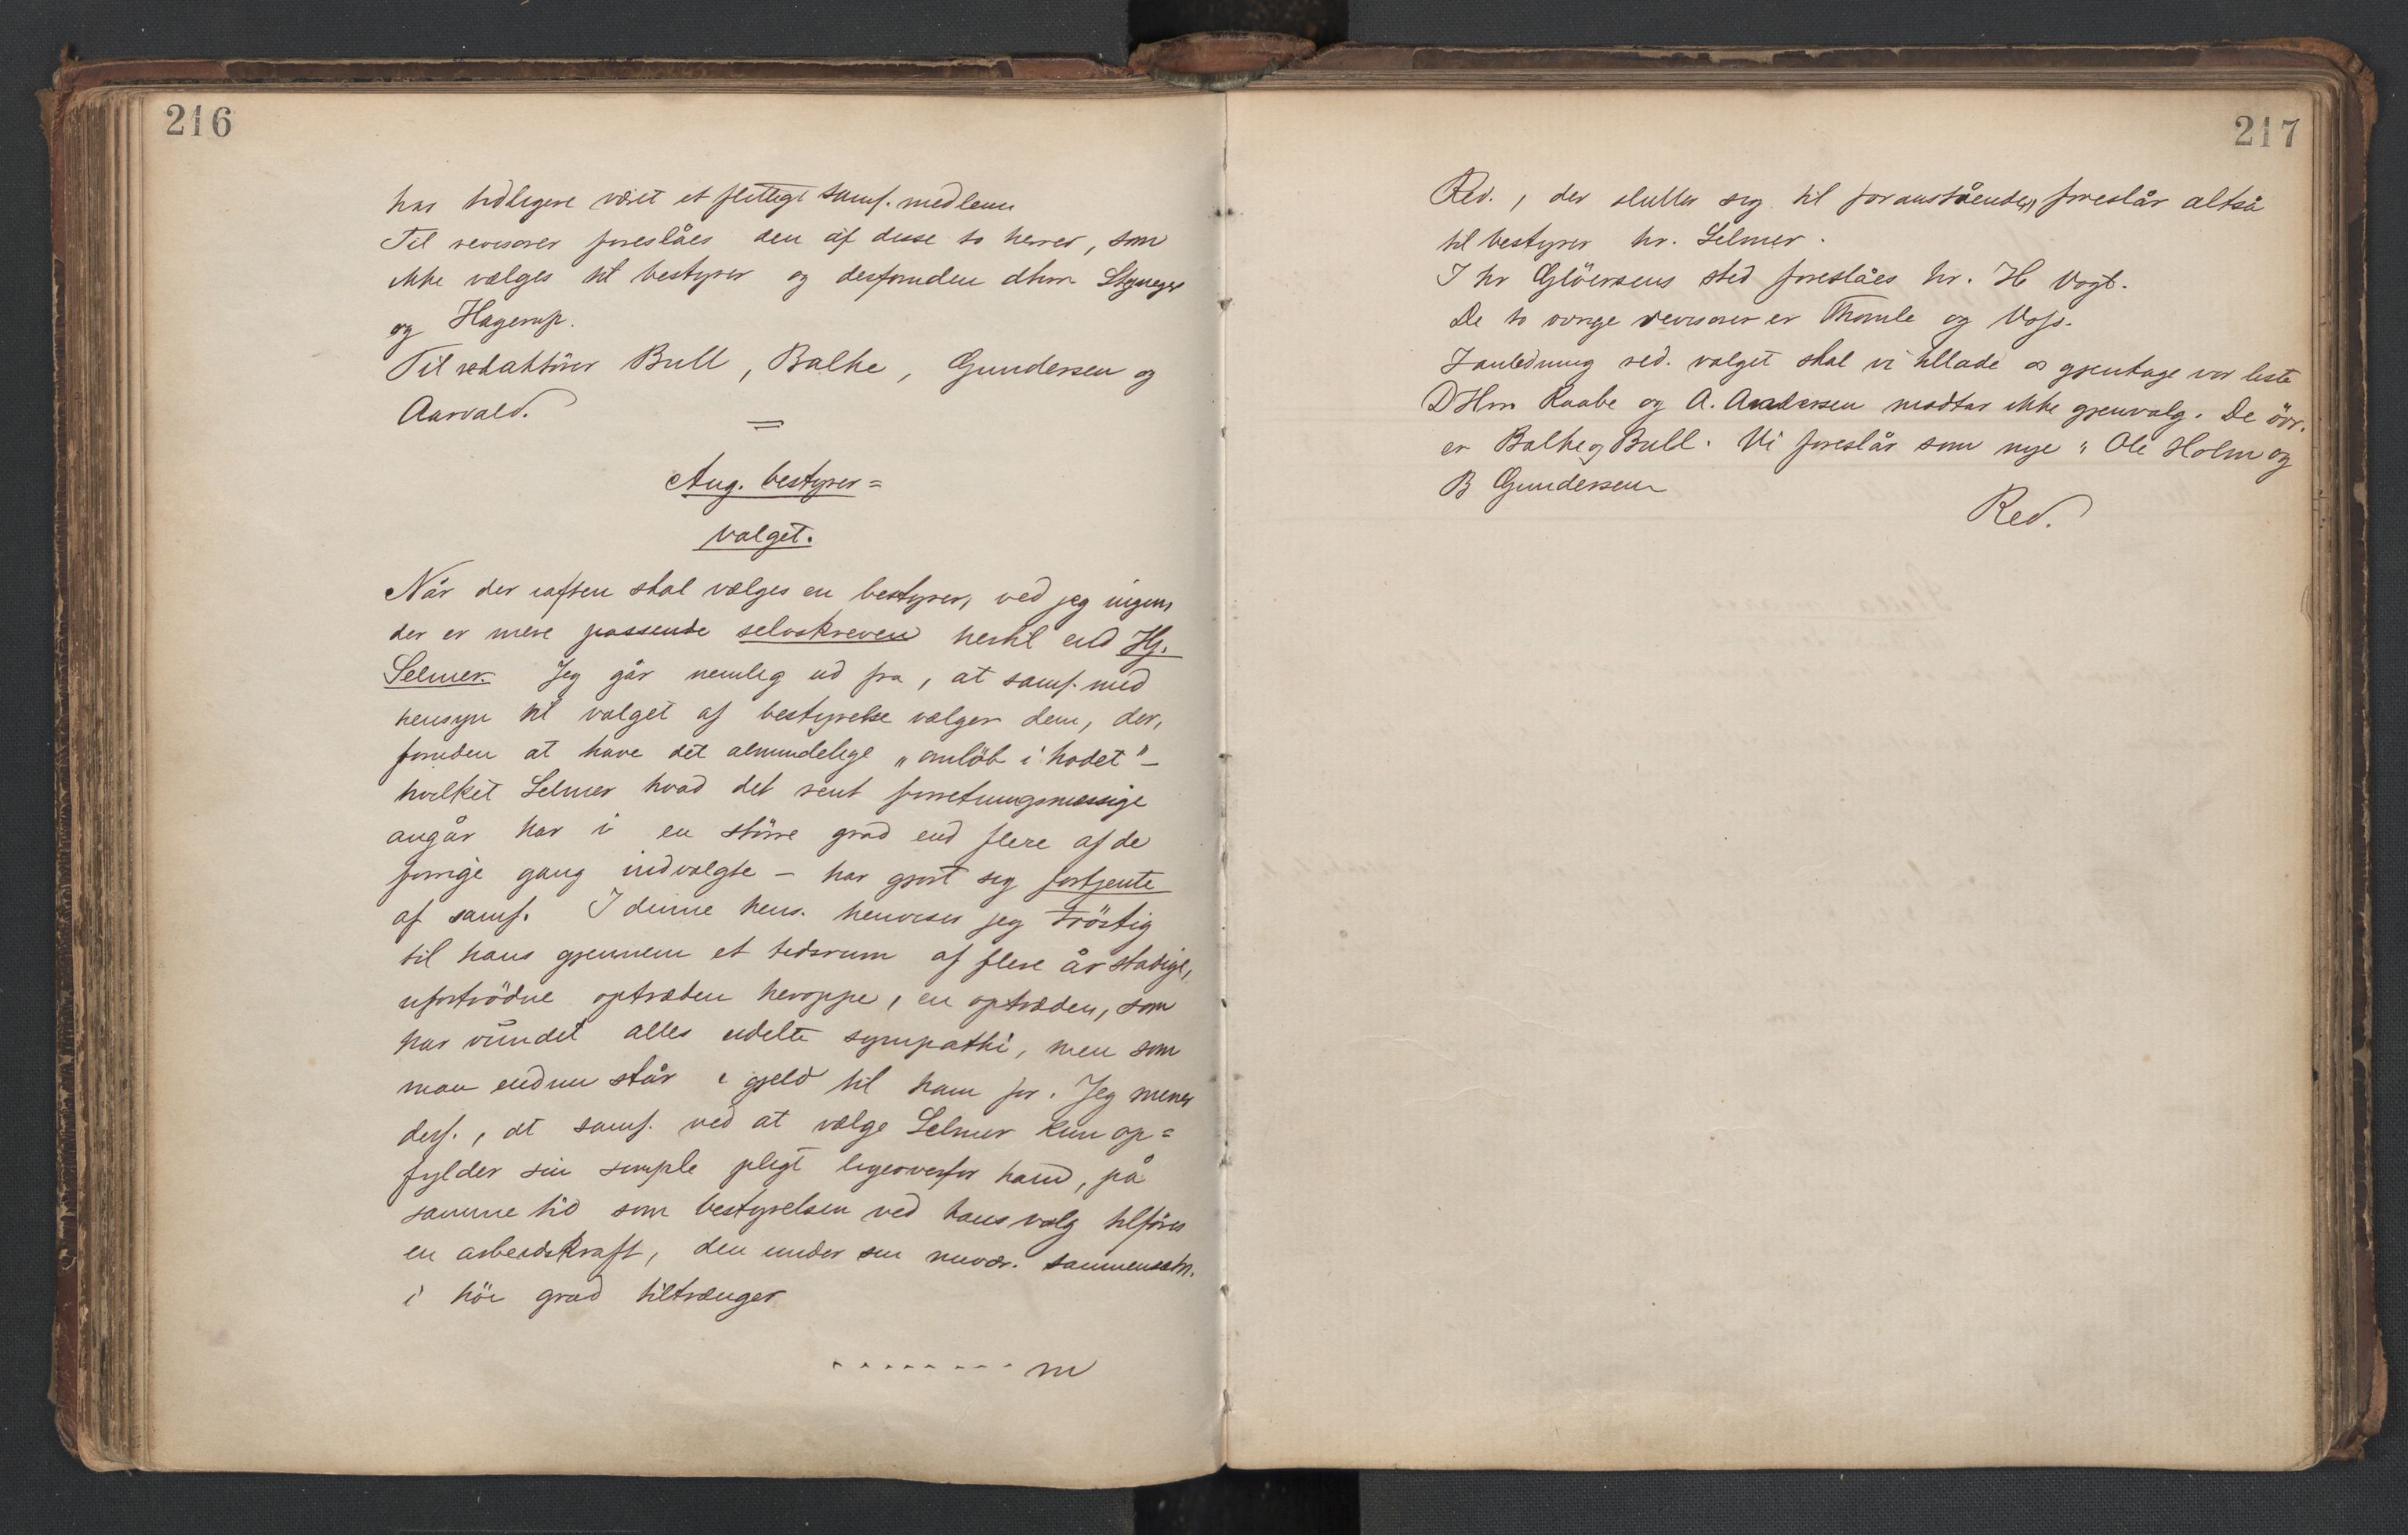 216
har tidligere været et flittigt samf. medlem
Til revisorer foreslåes den af disse to herrer, som
ikke vælges til bestyrer og desforuden dhrr
og Hagerup.
Til redaktörer Bull, Balke, Gundersen og
Aarvald.
Ang. bestyrer=
valget.
Når der iaften skal vælges en bestyrer, ved jeg ingen,
der er mere passende selvskreven hertil end Hj.
Selmer. Jeg går nemlig ud fra, at samf. med
hensyn til valget af bestyrelse vælger dem, der,
foruden at have det almindelige „omlöb i hodet" –
hvilket Selmer hvad det rent forretningsmæssige
angår har i en större grad end flere af de
forrige gang indvalgte – har gjort sig fortjente
af samf. I denne hens. henviser jeg tröstig
til hans gjennem et tidsrum af flere år stadige,
ufortrödne optræden heroppe, en optræden, som
har vundet alles udelte sympathi, men som
man endnu står i gjeld til ham for. Jeg mener
derf., at samf. ved at vælge Selmer kun op=
fylder sin simple pligt ligeoverfor ham, på
samme tid som bestyrelsen ved hans valg tilföres
en arbeidskraft, den under sin nuvær. sammensætn.
i höi grad tiltrænger
- - - - - - - - m
217
Red., der slutter sig til foranstående, foreslår altså
til bestyrer hr. Selmer.
I hr Glöersens sted foreslåes hr. H Vogt.
De to övrige revisorer er Thomle og Voss.
I anledning red. valget skal vi tillade os gjentage vor liste
DHrr Raabe og A. Andersen modtar ikke gjenvalg. De övr.
er Balke og Bull. Vi foreslår som nye: Ole Holm og
B Gundersen
Red.